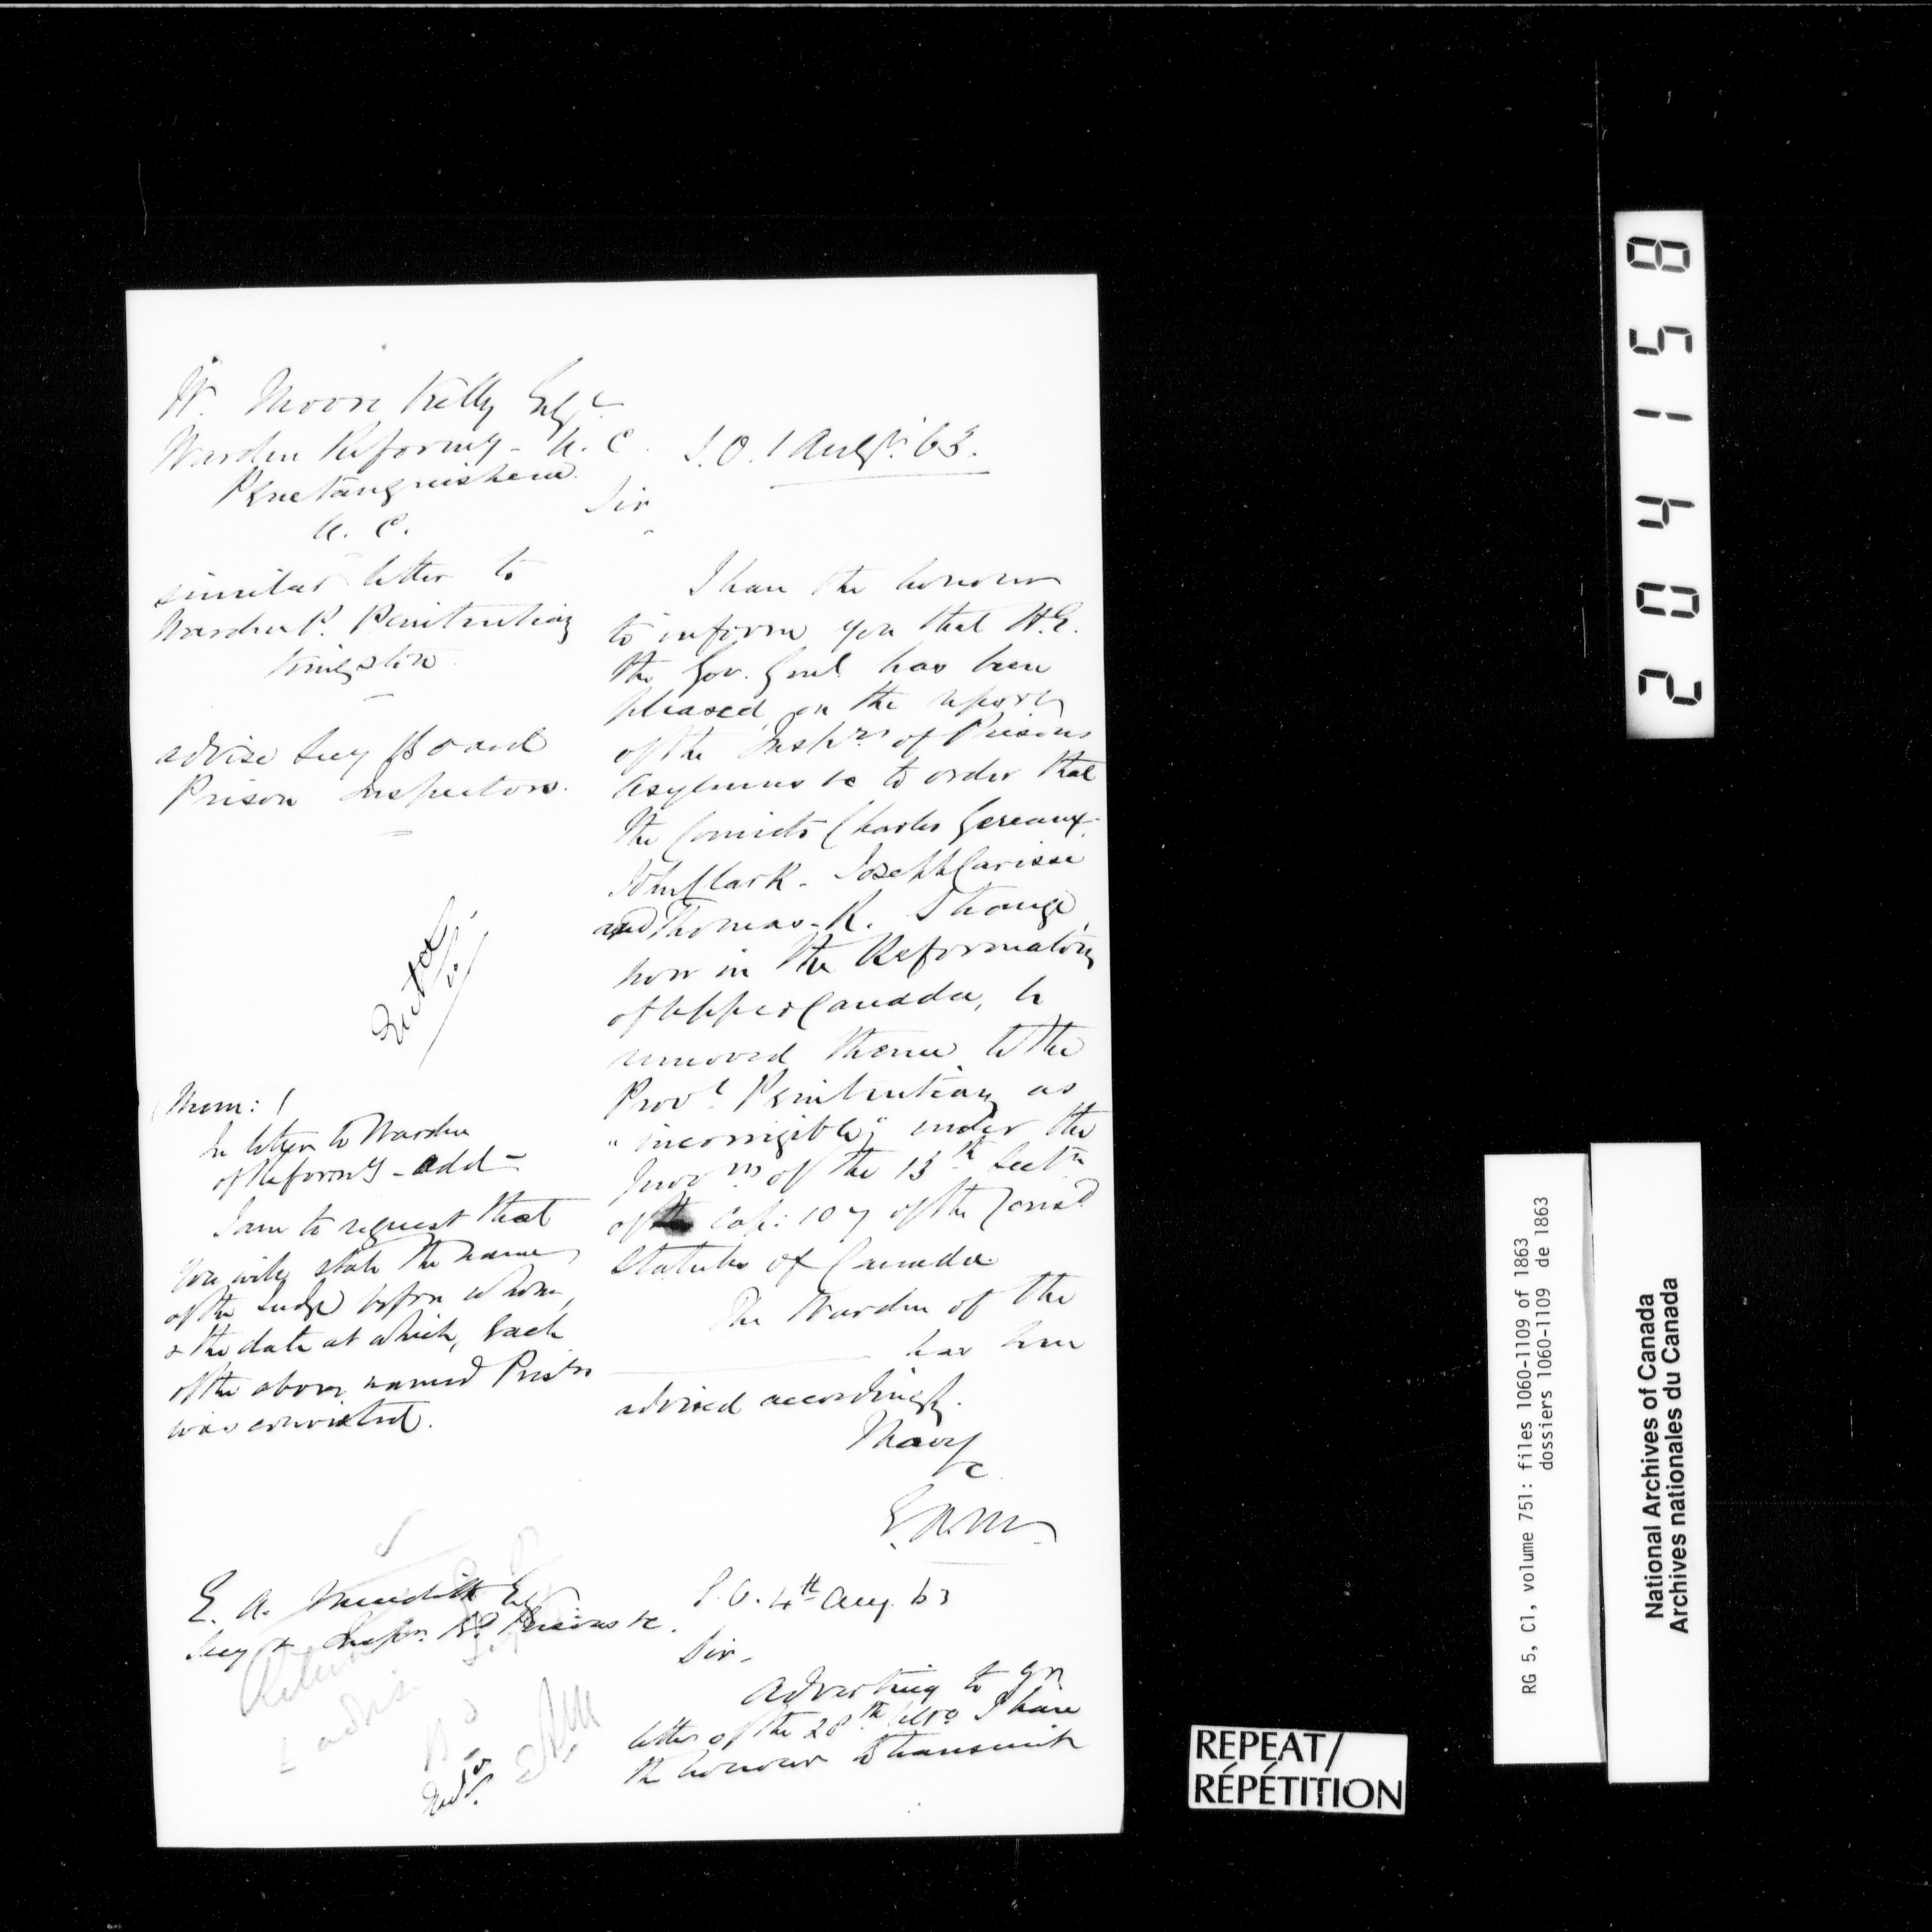 W. Moore Kelly Esqr
Warden Reformy - U. C.
Penetanguishene
U. C.
similar letter to
Warden P. Penitentiary
Kingston
advise Secy Board
Prison Inspectors.
Entd
Mem:
In letter to Warden
of Reformy - add -
I am to request that
you will state the name
of the Judge before whom,
& the date at which, each
of the above named Prisrs
was convicted.
S.O. 1 Augt. 63.
Sir
I have the honour
to inform you that H.E.
the Gov. Genl has been
pleased, on the report
of the Insprs of Prisons
Asylums &c to order that
the Convicts Charles Gereaux -
John Clark - Joseph Carisse
and Thomas - R. Strange
now in the Reformatory
of Upper Canada, be
removed thence to the
Provl Penitentiary as
"incorrigible" under the
provns of the 13th Sectn
of the Cap: 107 of the Consd
Statutes of Canada
The Warden of the
has been
advised accordingly.
I have
&c
E.A.M.
E. A. Meredith Esqr
Secy Inspn Bd Prisons &c.
S.O. 4th Aug. 63
Sir -
Adverting to yr
letter of the 28th ulto I have
the honour to transmit
Entd.
REPEAT/
RÉPÉTITION
204158
RG 5, C1, volume 751: files 1060-1109 of 1863
dossiers 1060-1109 de 1863
National Archives of Canada
Archives nationales du Canada